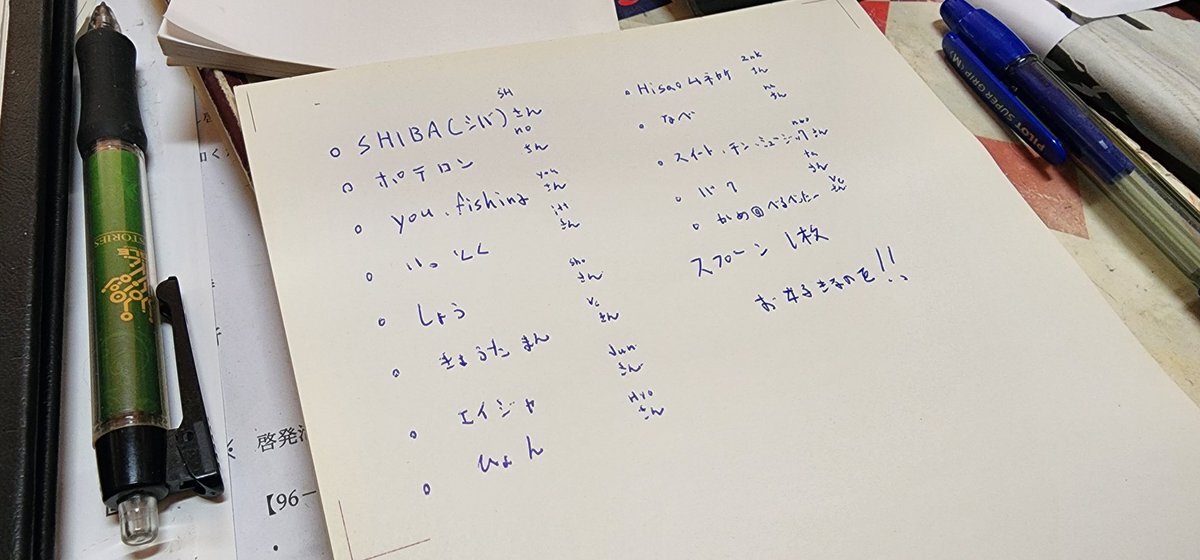 SH
SHIBA(シバ)さん
no
ポテロン さん
you
you.fishing さん
いっとく さん
sho
しょう さん
きょうたまん さん
Jun
エイジャ さん
Hyo
ひょん さん
Hisaoムネ さん
なべ さん
スイート・テン・ミュージック さん
バク さん
かめ@べるべったー さん
スプーン 1枚
お好きなのを!!
PILOT SUPER GRIP (M)
STORIES
啓発
【96-